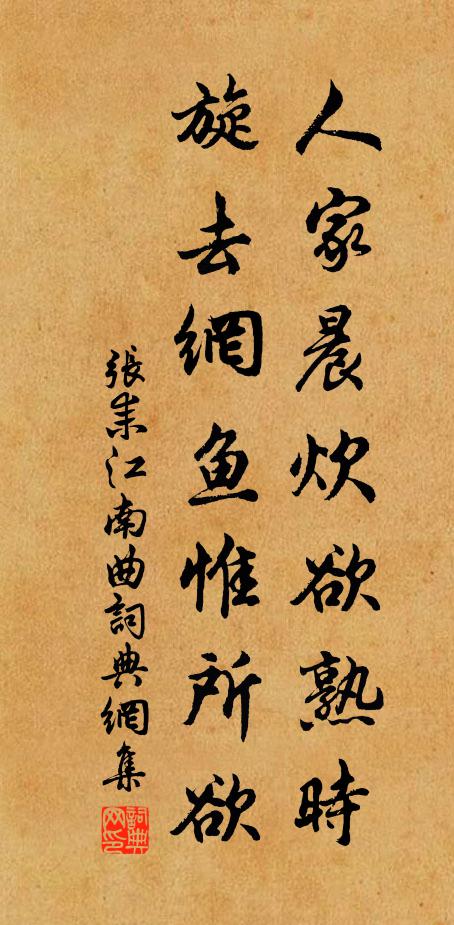 人家晨炊欲熟時
旋去網魚惟所欲
張耒江南曲詞典網集
詞典網印